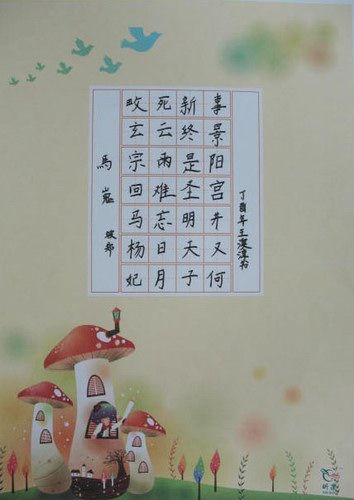 馬嵬坡郑
畋玄宗回马杨妃
死云雨难忘日月
新终是圣明天子
事景阳宫井又何
丁酉年王